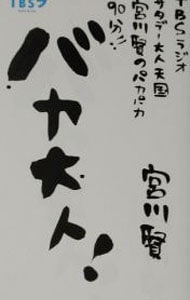 TBSラジオ
サタデー大人天国
宮川賢のパカパカ
90分!!
宮川賢
バカ大人!
TBS